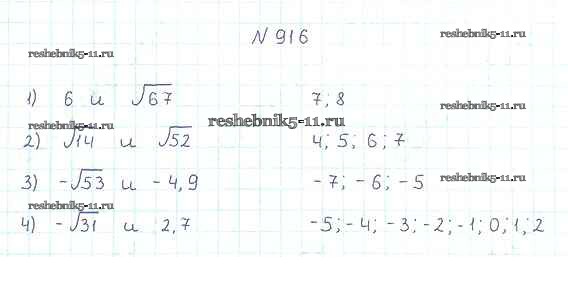 № 916
reshebnik5-11.ru
reshebnik5-11.ru
1) 6 и √67 7; 8
reshebnik5-11.ru
reshebnik5-11.ru
reshebnik5-11.ru
2) √14 и √52 4; 5; 6; 7
3) -√53 и -4,9 -7; -6; -5
reshebnik5-11.ru
reshebnik5-11.ru
4) -√31 и 2,7 -5; -4; -3; -2; -1; 0; 1; 2